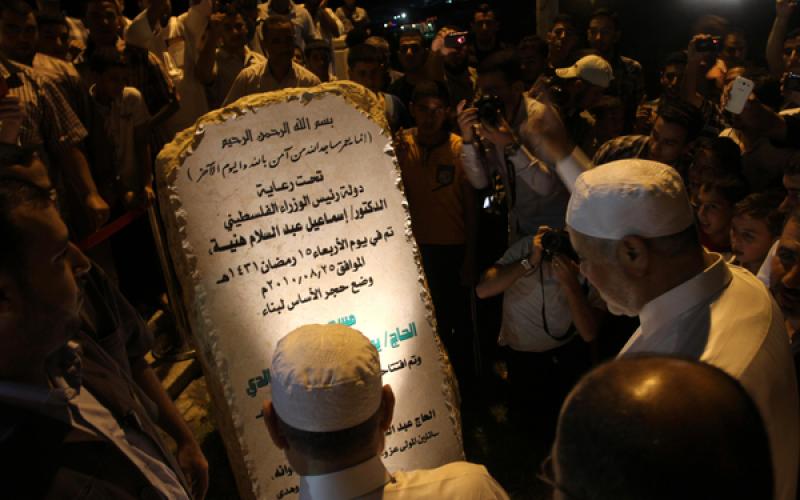 بسم الله الرحمن الرحيم
(إنما يعمر مساجد الله من آمن بالله واليوم الآخر)
تحت رعاية
دولة رئيس الوزراء الفلسطيني
الدكتور/ إسماعيل عبد السلام هنية،
تم في يوم الأربعاء ١٥ رمضان ١٤٣١هـ
الموافق ٢٠١٠,٠٨,٢٥م
وضع حجر الأساس لبناء
الحاج/
وتم افتتاح
الحاج عبد
سائلين المولى عز و